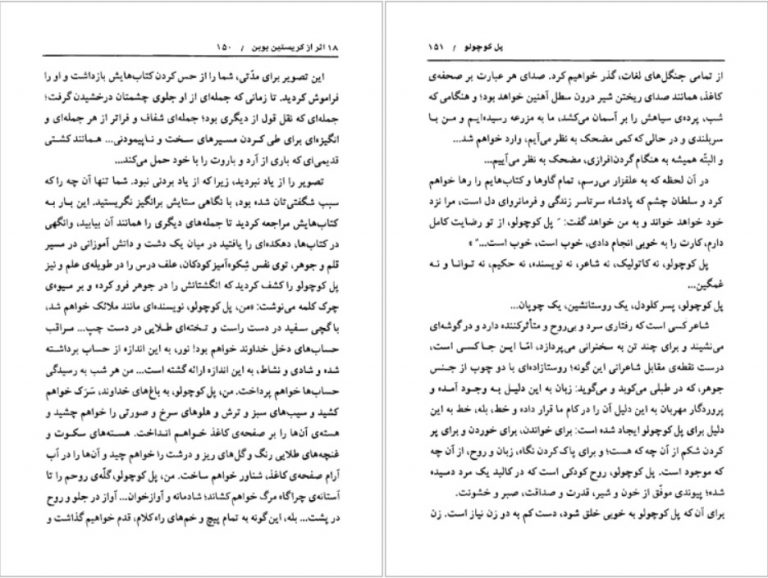 ۱۸ اثر از کریستین بوبن / ۱۵۰
این تصویر برای مدّتی، شما را از حس کردن کتاب‌هایش بازداشت و او را
فراموش کردید. تا زمانی که جمله‌ای از او جلوی چشمتان درخشیدن گرفت؛
جمله‌ای که نقل قول از دیگری بود؛ جمله‌ای شفاف و فراتر از هر جمله‌ای و
انگیزه‌ای برای طی کردن مسیرهای سخت و ناپیمودنی... همانند کشتی
قدیمی‌ای که باری از آرد و باروت را با خود حمل می‌کند...
تصویر را از یاد نبردید، زیرا که از یاد بردنی نبود. شما تنها آن چه را که
سبب شگفتی‌تان شده بود، با نگاهی ستایش برانگیز نگریستید. این بار به
کتاب‌هایش مراجعه کردید تا جمله‌های دیگری را همانند آن بیابید، وانگهی
در کتاب‌ها، دهکده‌ای را یافتید در میان یک دشت و دانش آموزانی در مسیر
قلم و جوهر، توی نفس شِکوه‌آمیز کودکان، علف درس را در طویله‌ی علم و نیز
پل کوچولو را کشف کردید که انگشتانش را در جوهر فرو کرده و بر میوه‌ی
چرک کلمه می‌نوشت: «من، پل کوچولو، نویسنده‌ای مانند ملائک خواهم شد،
با گچی سفید در دست راست و تخته‌ای طلایی در دست چپ... مراقب
حساب‌های دخل خداوند خواهم بود! نور، به این اندازه از حساب برداشته
شده و شادی و نشاط، به این اندازه ارائه گشته است... من هر شب به رسیدگی
حساب‌ها خواهم پرداخت. من، پل کوچولو، به باغ‌های خداوند، سَرَک خواهم
کشید و سیب‌های سبز و ترش و هلوهای سرخ و صورتی را خواهم چشید و
هسته‌ی آن‌ها را بر صفحه‌ی کاغذ خواهم انداخت. هسته‌های سکوت و
غنچه‌های طلایی رنگ و گل‌های ریز و درشت را خواهم چید و آن‌ها را در آب
آرام صفحه‌ی کاغذ، شناور خواهم ساخت. من، پل کوچولو، گلّه‌ی روحم را تا
آستانه‌ی چراگاه مرگ خواهم کشاند؛ شادمانه و آوازخوان... آواز در جلو و روح
در پشت... بله، این‌گونه به تمام پیچ و خم‌های راه کلام، قدم خواهیم گذاشت و
پل کوچولو / ۱۵۱
از تمامی جنگل‌های لغات، گذر خواهیم کرد. صدای هر عبارت بر صفحه‌ی
کاغذ، همانند صدای ریختن شیر درون سطل آهنین خواهد بود؛ و هنگامی که
شب، پرده‌ی سیاهش را بر آسمان می‌کشد، ما به مزرعه رسیده‌ایم و من با
سربلندی و در حالی که کمی مضحک به نظر می‌آیم، وارد خواهم شد...
و البتّه همیشه به هنگام گردن‌افرازی، مضحک به نظر می‌آییم...
در آن لحظه که به علفزار می‌رسم، تمام گاوها و کتاب‌هایم را رها خواهم
کرد و سلطان چشم که پادشاه سرتاسر زندگی و فرمانروای دل است، مرا نزد
خود خواهد خواند و به من خواهد گفت: " پل کوچولو، از تو رضایت کامل
دارم، کارت را به خوبی انجام دادی، خوب است، خوب است..." »
پل کوچولو، نه کاتولیک، نه شاعر، نه نویسنده، نه حکیم، نه توانا و نه
غمگین...
پل کوچولو، پسر کلودل، یک روستانشین، یک چوپان...
شاعر کسی است که رفتاری سرد و بی‌روح و متأثرکننده دارد و در گوشه‌ای
می‌نشیند و برای چند تن به سخنرانی می‌پردازد، امّا این جا کسی است،
درست نقطه‌ی مقابل شاعرانی این گونه؛ روستازاده‌ای با دو چوب از جنس
جوهر، که در طبلی می‌کوبد و می‌گوید: زبان به این دلیل به وجود آمده و
پروردگار مهربان به این دلیل آن را در کام ما قرار داده و خط، بله، خط به این
دلیل برای پل کوچولو ایجاد شده است: برای خواندن، برای خوردن و برای پر
کردن شکم از آن چه که هست؛ و برای پاک کردن نگاه، زبان و روح، از آن چه
که موجود است. پل کوچولو، روح کودکی است که در کالبد یک مرد دمیده
شده؛ پیوندی موفّق از خون و شیر، قدرت و صداقت، صبر و خشونت.
برای آن که پل کوچولو به خوبی خلق شود، دست کم به دو زن نیاز است. زن